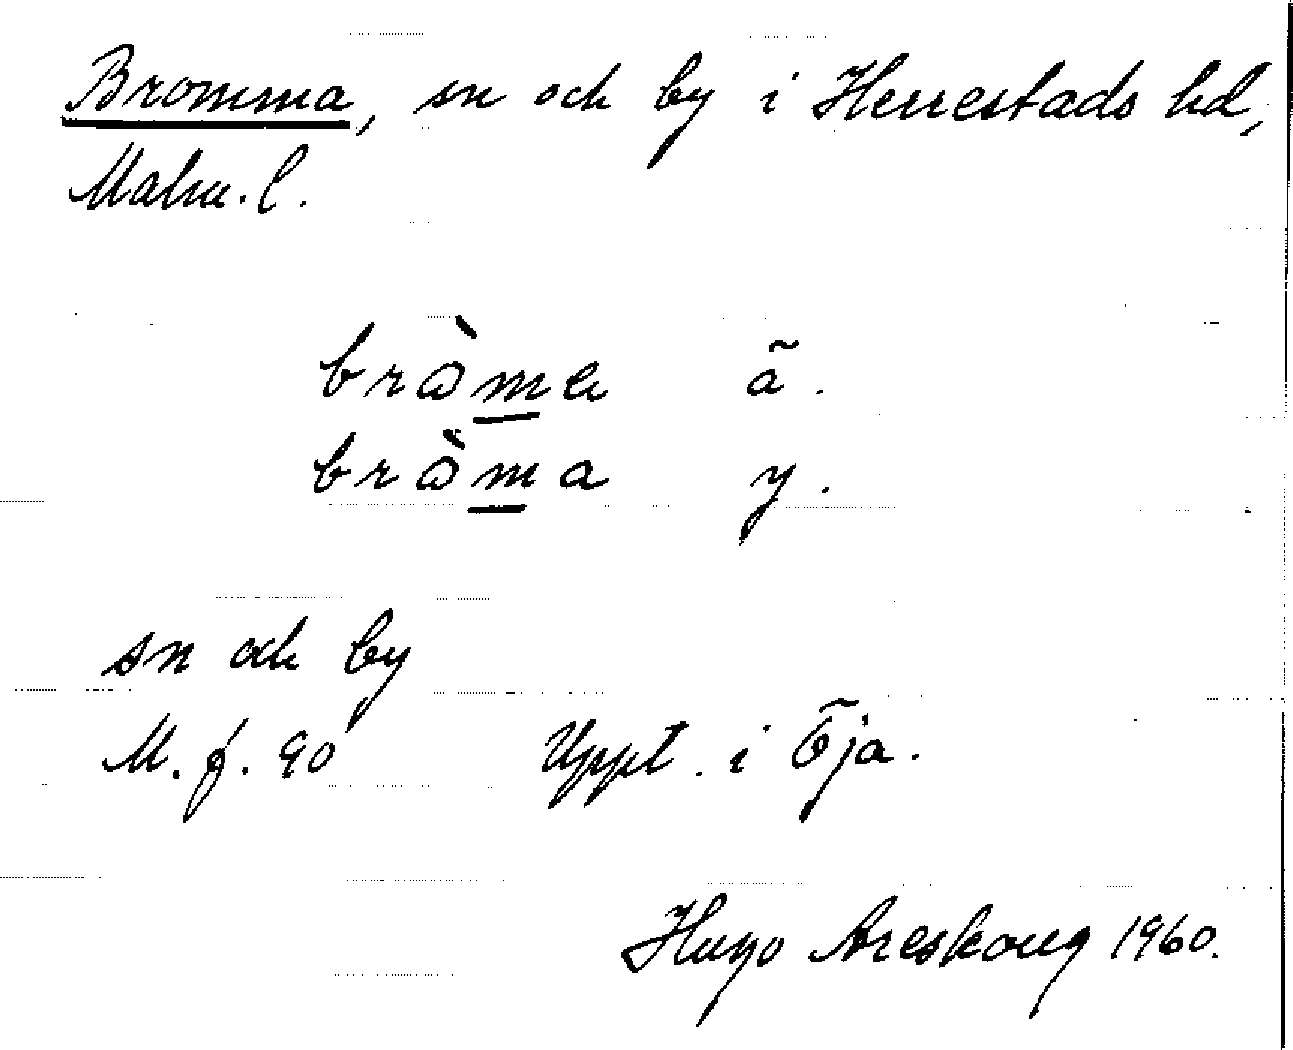 Bromma, sn och by i Herrestads hd,
Malm. l.
bròm̲a ã.
bròm̲a y.
sn och by
M. f. 90 Uppt. i Öja.
Hugo Areskoug 1960.